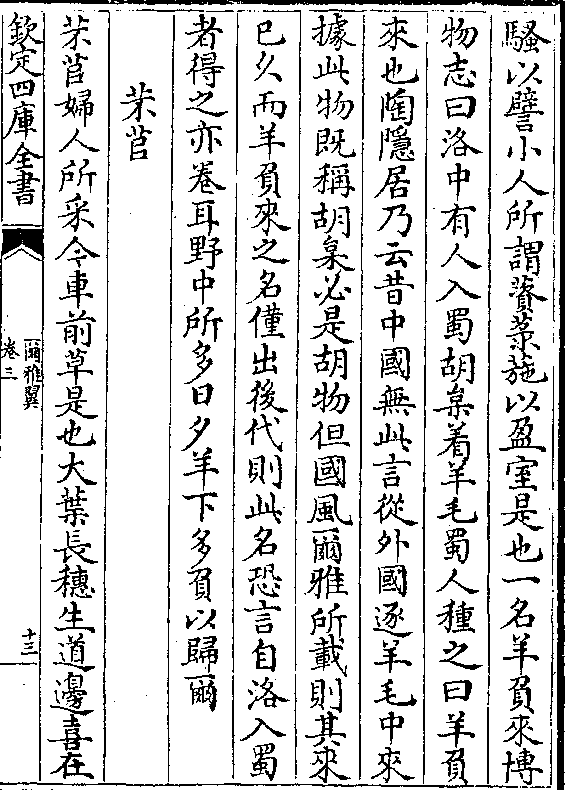 騷以譬小人所謂薋菉葹以盈室是也一名羊負來博
物志曰洛中有人入蜀胡枲着羊毛蜀人種之曰羊負
來也陶隱居乃云昔中國無此言從外國逐羊毛中來
據此物既稱胡枲必是胡物但國風爾雅所載則其來
已久而羊負來之名僅出後代則此名恐言自洛入蜀
者得之亦卷耳野中所多日夕羊下多負以歸爾
芣苢
芣苢婦人所采今車前草是也大葉長穗生道邊喜在
欽定四庫全書
爾雅翼
卷三
十三